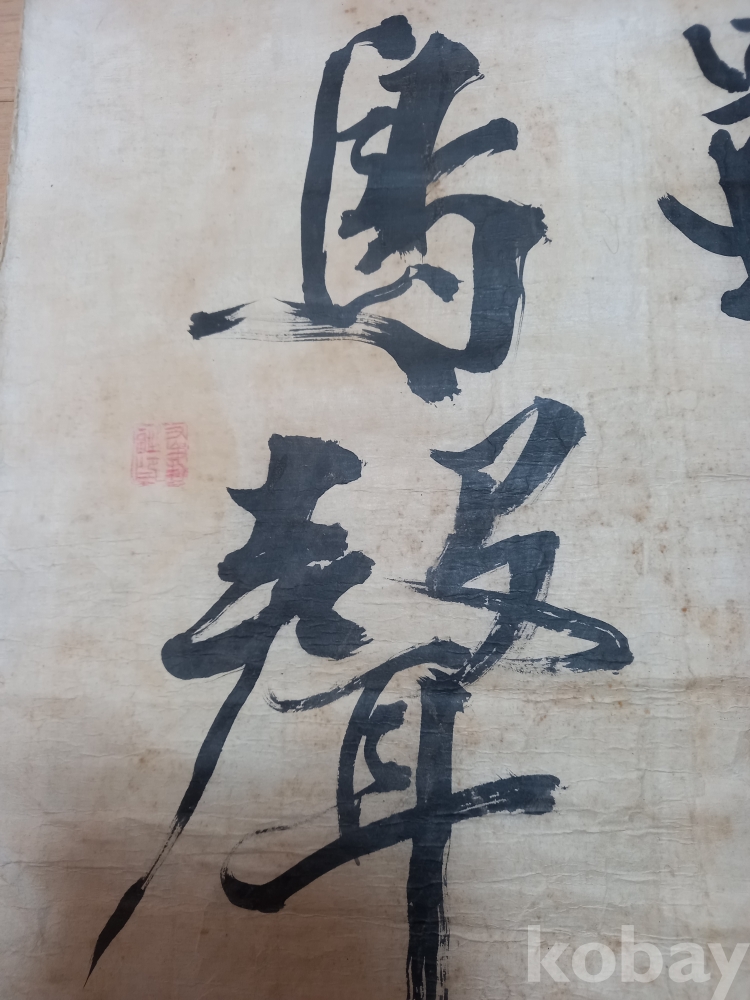 馬
聲
kobay